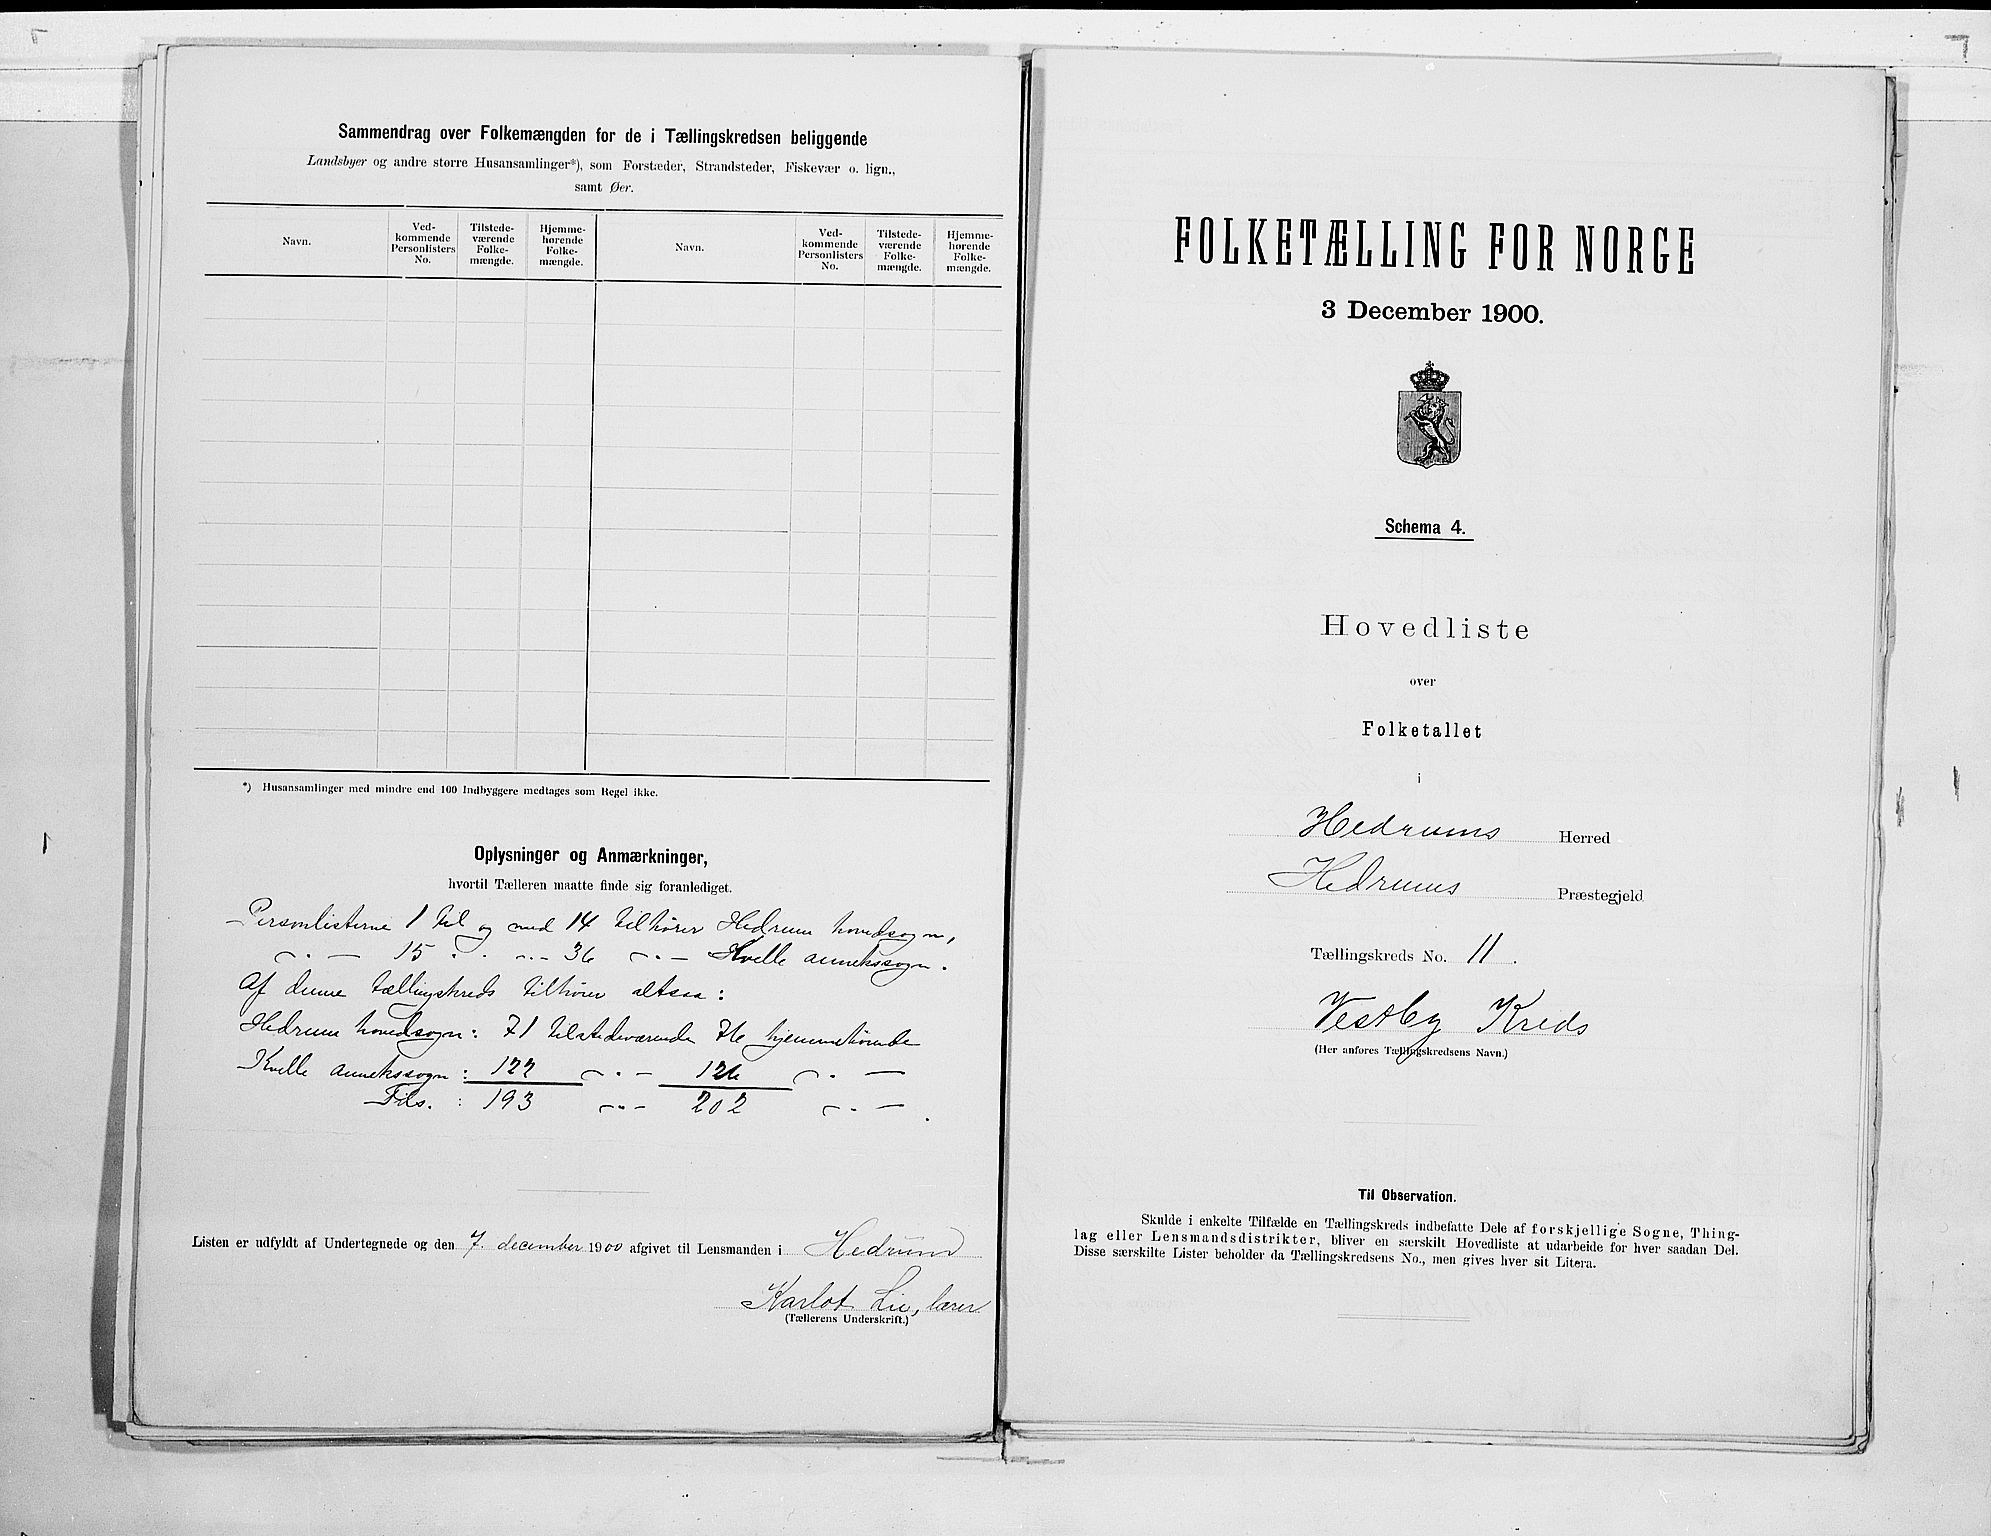 Sammendrag over Folkemængden for de i Tællingskredsen beliggende
Landsbyer og andre større Husansamlinger*), som Forstæder, Strandsteder, Fiskevær o. lign.,
samt Øer.
Navn.
Ved-
kommende
Personlisters
No.
Tilstede-
værende
Folke-
mængde.
Hjemme-
hørende
Folke-
mængde.
Navn.
Ved-
kommende
Personlisters
No.
Tilstede-
værende
Folke-
mængde.
Hjemme-
hørende
Folke-
mængde.
*) Husansamlinger med mindre end 100 Indbyggere medtages som Regel ikke.
Oplysninger og Anmærkninger,
hvortil Tælleren maatte finde sig foranlediget.
Personlisterne 1 til og med 14 tilhører Hedrum hovedsogn,
— " — 15 " " — " — 36 — " — Kvelle annekssogn.
Af denne tællingskreds tilhører altsaa:
Hedrum hovedsogn: 71 tilstedeværende 76 hjemmehørende
Kvelle annekssogn: 122 — " — 126 — " —
Tils. : 193 — " — 202 — " — .
Listen er udfyldt af Undertegnede og den 7. december 1900 afgivet til Lensmanden i Hedrum
Karlot Lie, lærer
(Tællerens Underskrift.)
FOLKETÆLLING FOR NORGE
3 December 1900.
Schema 4.
Hovedliste
over
Folketallet
i
Hedrums Herred
Hedrums Præstegjeld
Tællingskreds No. 11.
Vestby Kreds
(Her anføres Tællingskredsens Navn.)
Til Observation.
Skulde i enkelte Tilfælde en Tællingskreds indbefatte Dele af forskjellige Sogne, Thing-
lag eller Lensmandsdistrikter, bliver en særskilt Hovedliste at udarbeide for hver saadan Del.
Disse særskilte Lister beholder da Tællingskredsens No., men gives hver sit Litera.